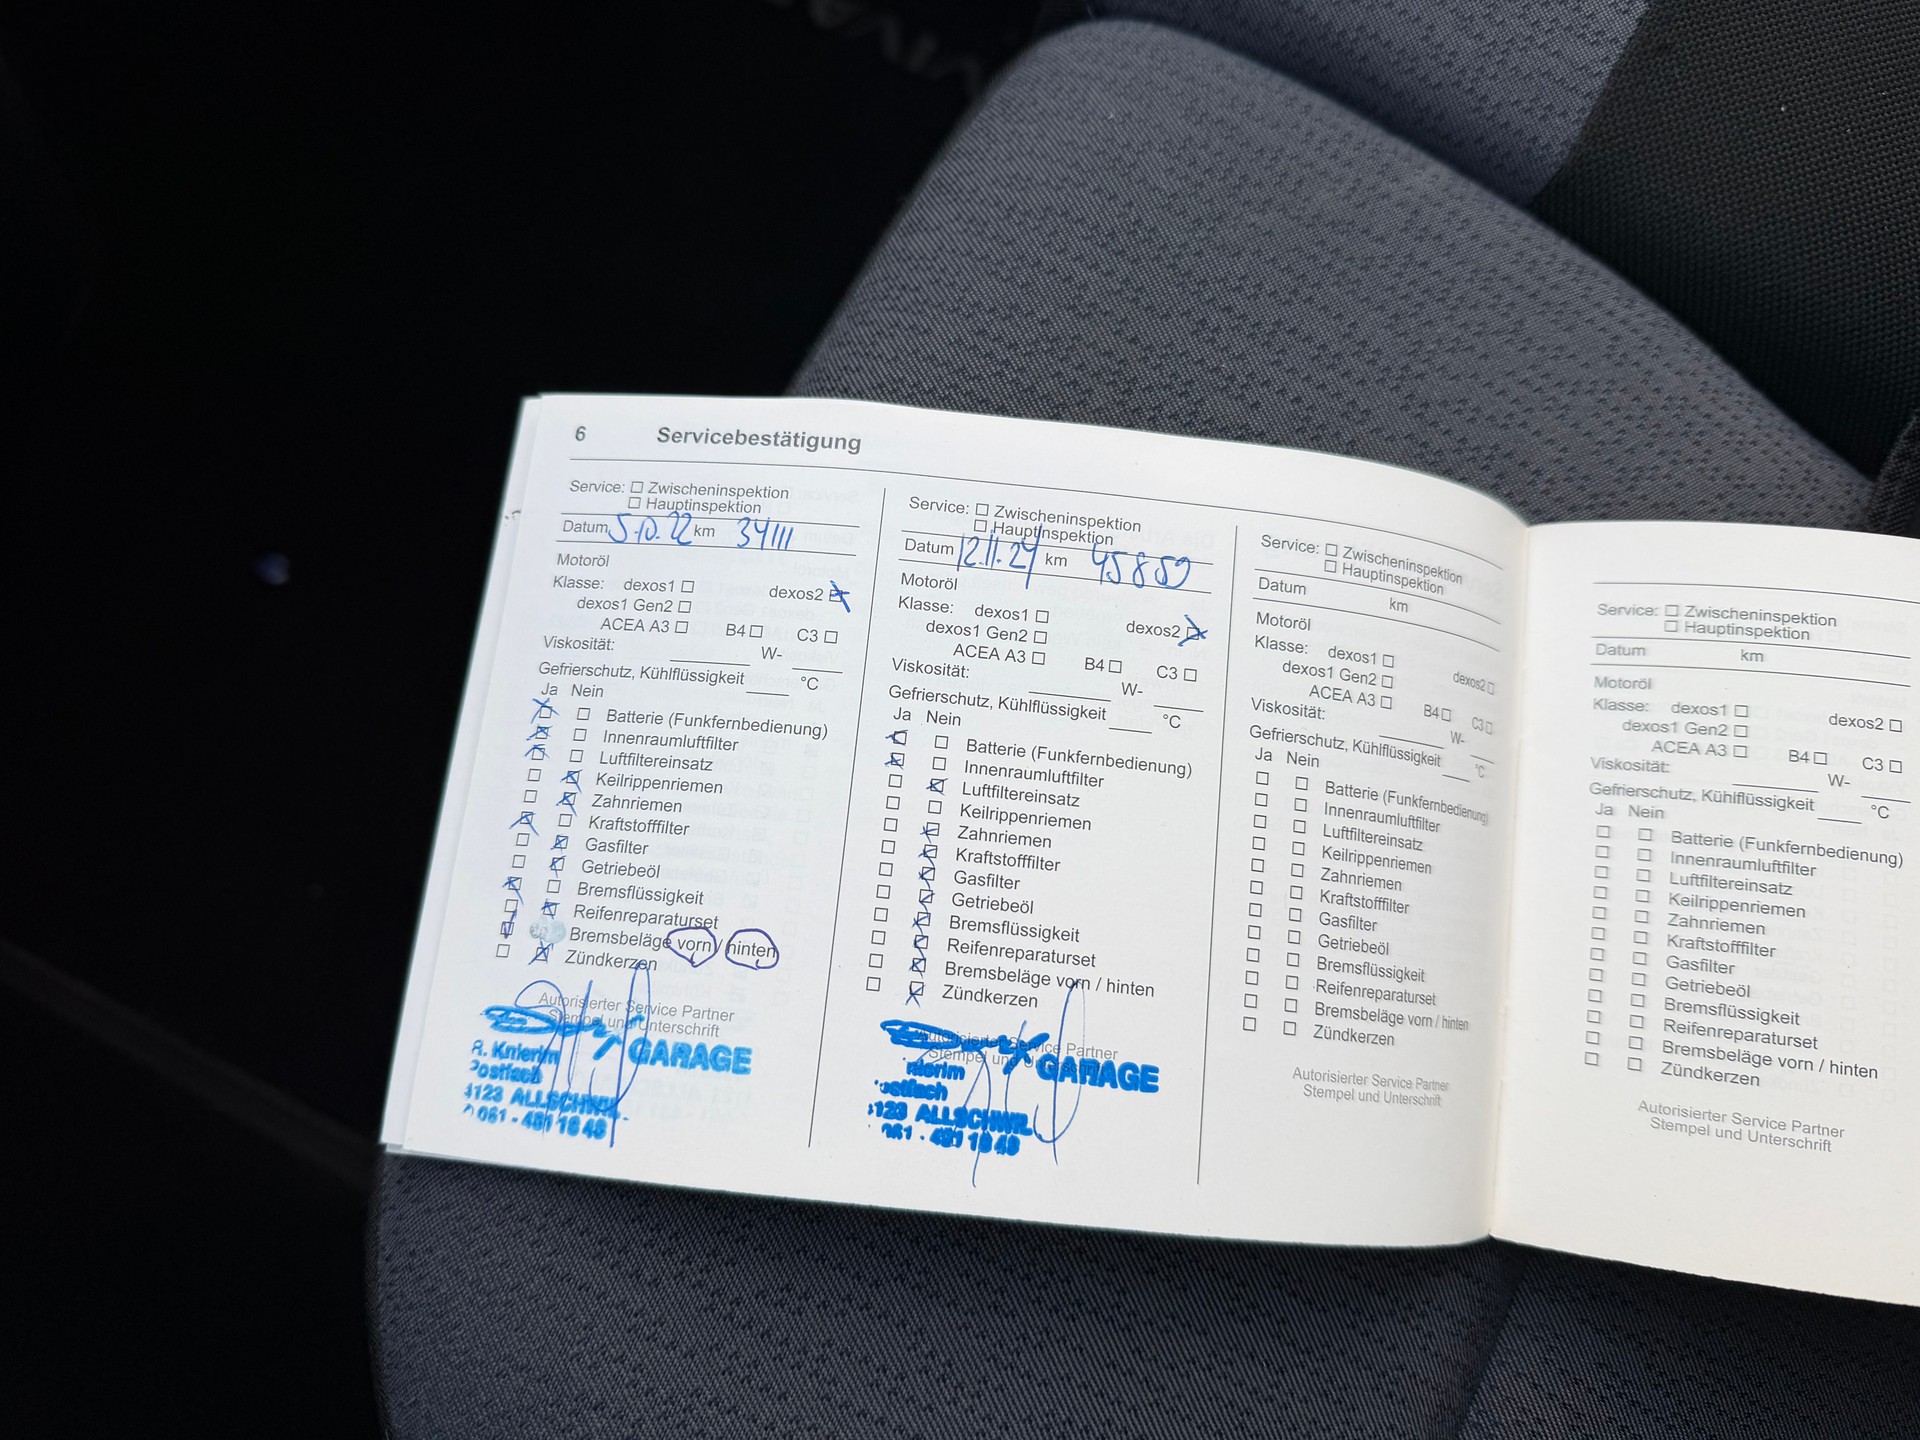 6 Servicebestätigung
Service: Zwischeninspektion
Hauptinspektion
Datum 5.10.22 km 34111
Motoröl
Klasse: dexos1 dexos2
dexos1 Gen2
ACEA A3 B4 C3
Viskosität: W-
Gefrierschutz, Kühlflüssigkeit °C
Ja Nein
Batterie (Funkfernbedienung)
Innenraumluftfilter
Luftfiltereinsatz
Keilrippenriemen
Zahnriemen
Kraftstofffilter
Gasfilter
Getriebeöl
Bremsflüssigkeit
Reifenreparaturset
Bremsbeläge vorn / hinten
Zündkerzen
Autorisierter Service Partner
Stempel und Unterschrift
GARAGE
R. Knierim
Postfach
4123 ALLSCHWIL
061 - 481 18 48
Service: Zwischeninspektion
Hauptinspektion
Datum 12.11.24 km 45859
Motoröl
Klasse: dexos1 dexos2
dexos1 Gen2
ACEA A3 B4 C3
Viskosität: W-
Gefrierschutz, Kühlflüssigkeit °C
Ja Nein
Batterie (Funkfernbedienung)
Innenraumluftfilter
Luftfiltereinsatz
Keilrippenriemen
Zahnriemen
Kraftstofffilter
Gasfilter
Getriebeöl
Bremsflüssigkeit
Reifenreparaturset
Bremsbeläge vorn / hinten
Zündkerzen
Autorisierter Service Partner
Stempel und Unterschrift
GARAGE
nierim
ostfach
123 ALLSCHWIL
061 - 481 18 48
Service: Zwischeninspektion
Hauptinspektion
Datum km
Motoröl
Klasse: dexos1 dexos2
dexos1 Gen2
ACEA A3 B4 C3
Viskosität: W-
Gefrierschutz, Kühlflüssigkeit °C
Ja Nein
Batterie (Funkfernbedienung)
Innenraumluftfilter
Luftfiltereinsatz
Keilrippenriemen
Zahnriemen
Kraftstofffilter
Gasfilter
Getriebeöl
Bremsflüssigkeit
Reifenreparaturset
Bremsbeläge vorn / hinten
Zündkerzen
Autorisierter Service Partner
Stempel und Unterschrift
Service: Zwischeninspektion
Hauptinspektion
Datum km
Motoröl
Klasse: dexos1 dexos2
dexos1 Gen2
ACEA A3 B4 C3
Viskosität: W-
Gefrierschutz, Kühlflüssigkeit °C
Ja Nein
Batterie (Funkfernbedienung)
Innenraumluftfilter
Luftfiltereinsatz
Keilrippenriemen
Zahnriemen
Kraftstofffilter
Gasfilter
Getriebeöl
Bremsflüssigkeit
Reifenreparaturset
Bremsbeläge vorn / hinten
Zündkerzen
Autorisierter Service Partner
Stempel und Unterschrift